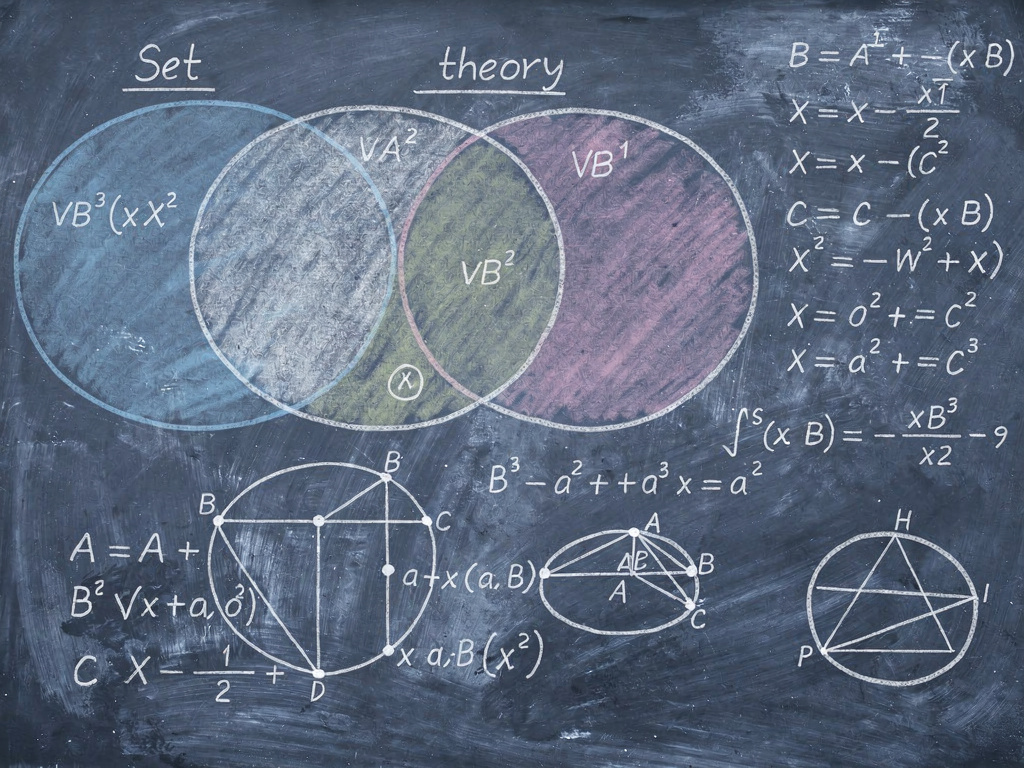 Set theory
VB³(xX²
VA²
VB¹
VB²
X
B = A¹ + –(x B)
X = x – x1/2
X = x – (C²
C = C – (x B)
X² = –W² + x)
X = o² + = C²
X = a² + = C³
∫ˢ(x B) = – xB³/x2 – 9
B³ – a² + + a³ x = a²
A = A +
B² √x + a, o²)
C X – 1/2 +
B
B
C
D
a + x (a, B)
x a,·B (x²)
A
B
C
A
H
I
P